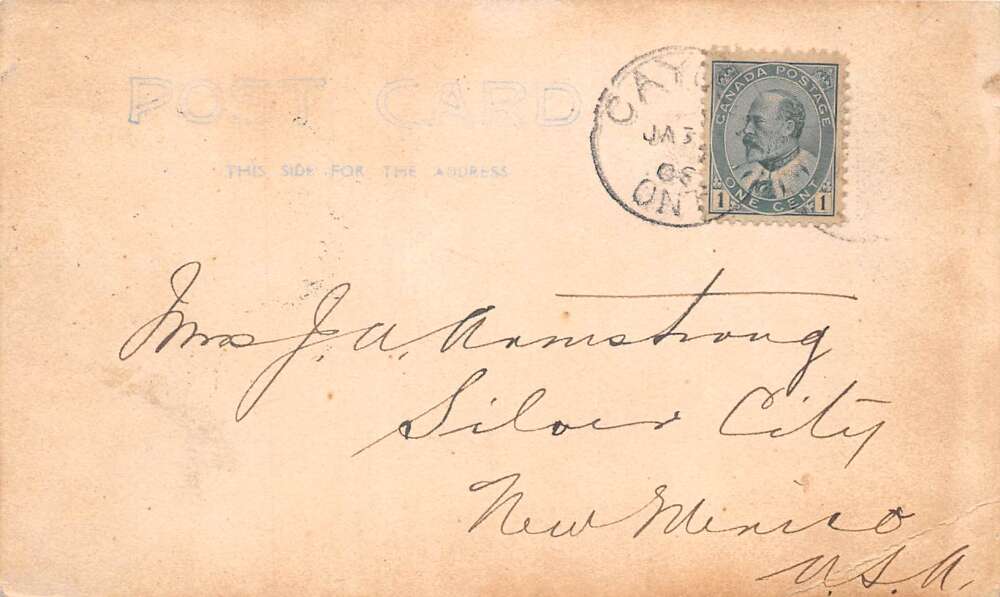 POST CARD
THIS SIDE FOR THE ADDRESS
JA 3
06
ONT
CANADA POSTAGE
1 ONE CENT 1
Mrs J. A. Armstrong
Silver City
New Mexico
U.S.A.